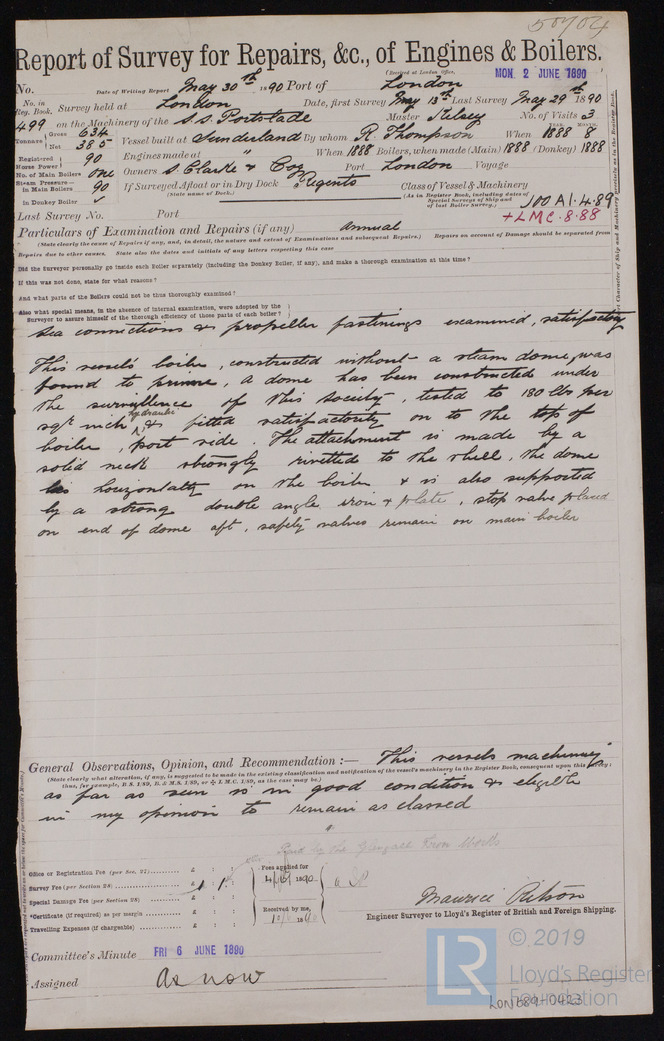 50704
Report of Survey for Repairs, &c., of Engines & Boilers.
(Received at London Office, MON. 2 JUNE 1890
No. Date of Writing Report May 30th 1890 Port of London
No. in Reg. Book. Survey held at London Date, first Survey May 13th Last Survey May 29th 1890
499 on the Machinery of the S.S. Portslade Master Kelsey No. of Visits 3
Tonnage Gross 634 Net 385 Vessel built at Sunderland By whom R. Thompson When YEAR. 1888 MONTH. 8
Registered Horse Power 90 Engines made at " When 1888 Boilers, when made (Main) 1888 (Donkey) 1888
No. of Main Boilers one Owners S. Clarke & Co Port London Voyage
Steam Pressure— in Main Boilers 90 If Surveyed Afloat or in Dry Dock Regents Class of Vessel & Machinery
(State name of Dock.) (As in Register Book, including dates of Special Surveys of Ship and of last Boiler Survey.) 100 A1. 4.89
in Donkey Boiler ✓ + LMC. 8.88
Last Survey No. Port
Particulars of Examination and Repairs (if any) Annual
(State clearly the cause of Repairs if any, and, in detail, the nature and extent of Examinations and subsequent Repairs.) Repairs on account of Damage should be separated from
Repairs due to other causes. State also the dates and initials of any letters respecting this case
Did the Surveyor personally go inside each Boiler separately (including the Donkey Boiler, if any), and make a thorough examination at this time?
If this was not done, state for what reasons?
And what parts of the Boilers could not be thus thoroughly examined?
Also what special means, in the absence of internal examination, were adopted by the
Surveyor to assure himself of the thorough efficiency of those parts of each boiler?
Sea connections & propeller fastenings examined, satisfactory
This vessel's boiler, constructed without a steam dome, was
found to prime, a dome has been constructed under
the surveillence of this society, tested to 180 lbs per
sqr inch hydraulic & fitted satisfactority on to the top of
boiler, port side. The attachment is made by a
solid neck strongly rivetted to the shell, the dome
lies horizontally on the boiler & is also supported
by a strong double angle iron & plate, stop valve placed
on end of dome aft, safety valves remain on main boiler
General Observations, Opinion, and Recommendation :— This vessels machinery
(State clearly what alteration, if any, is suggested to be made in the existing classification and notification of the vessel's machinery in the Register Book, consequent upon this survey;
thus, for example, B.S. 1/89, B. & M.S. 1/89, or L.M.C. 1/89, as the case may be.)
as far as seen is in good condition & eligible
in my opinion to remain as classed
Office or Registration Fee (per Sec. 27) £ : :
Survey Fee (per Section 28) £ 1 : 1 :
Special Damage Fee (per Section 28) £ : :
*Certificate (if required) as per margin £ : :
Travelling Expenses (if chargeable) £ : :
Fees applied for
1890
Received by me,
18
Maurice Ritson
Engineer Surveyor to Lloyd's Register of British and Foreign Shipping.
Committee's Minute FRI 6 JUNE 1890
Assigned As now
© 2019
LR Lloyd's Register
Foundation
LON689-0423